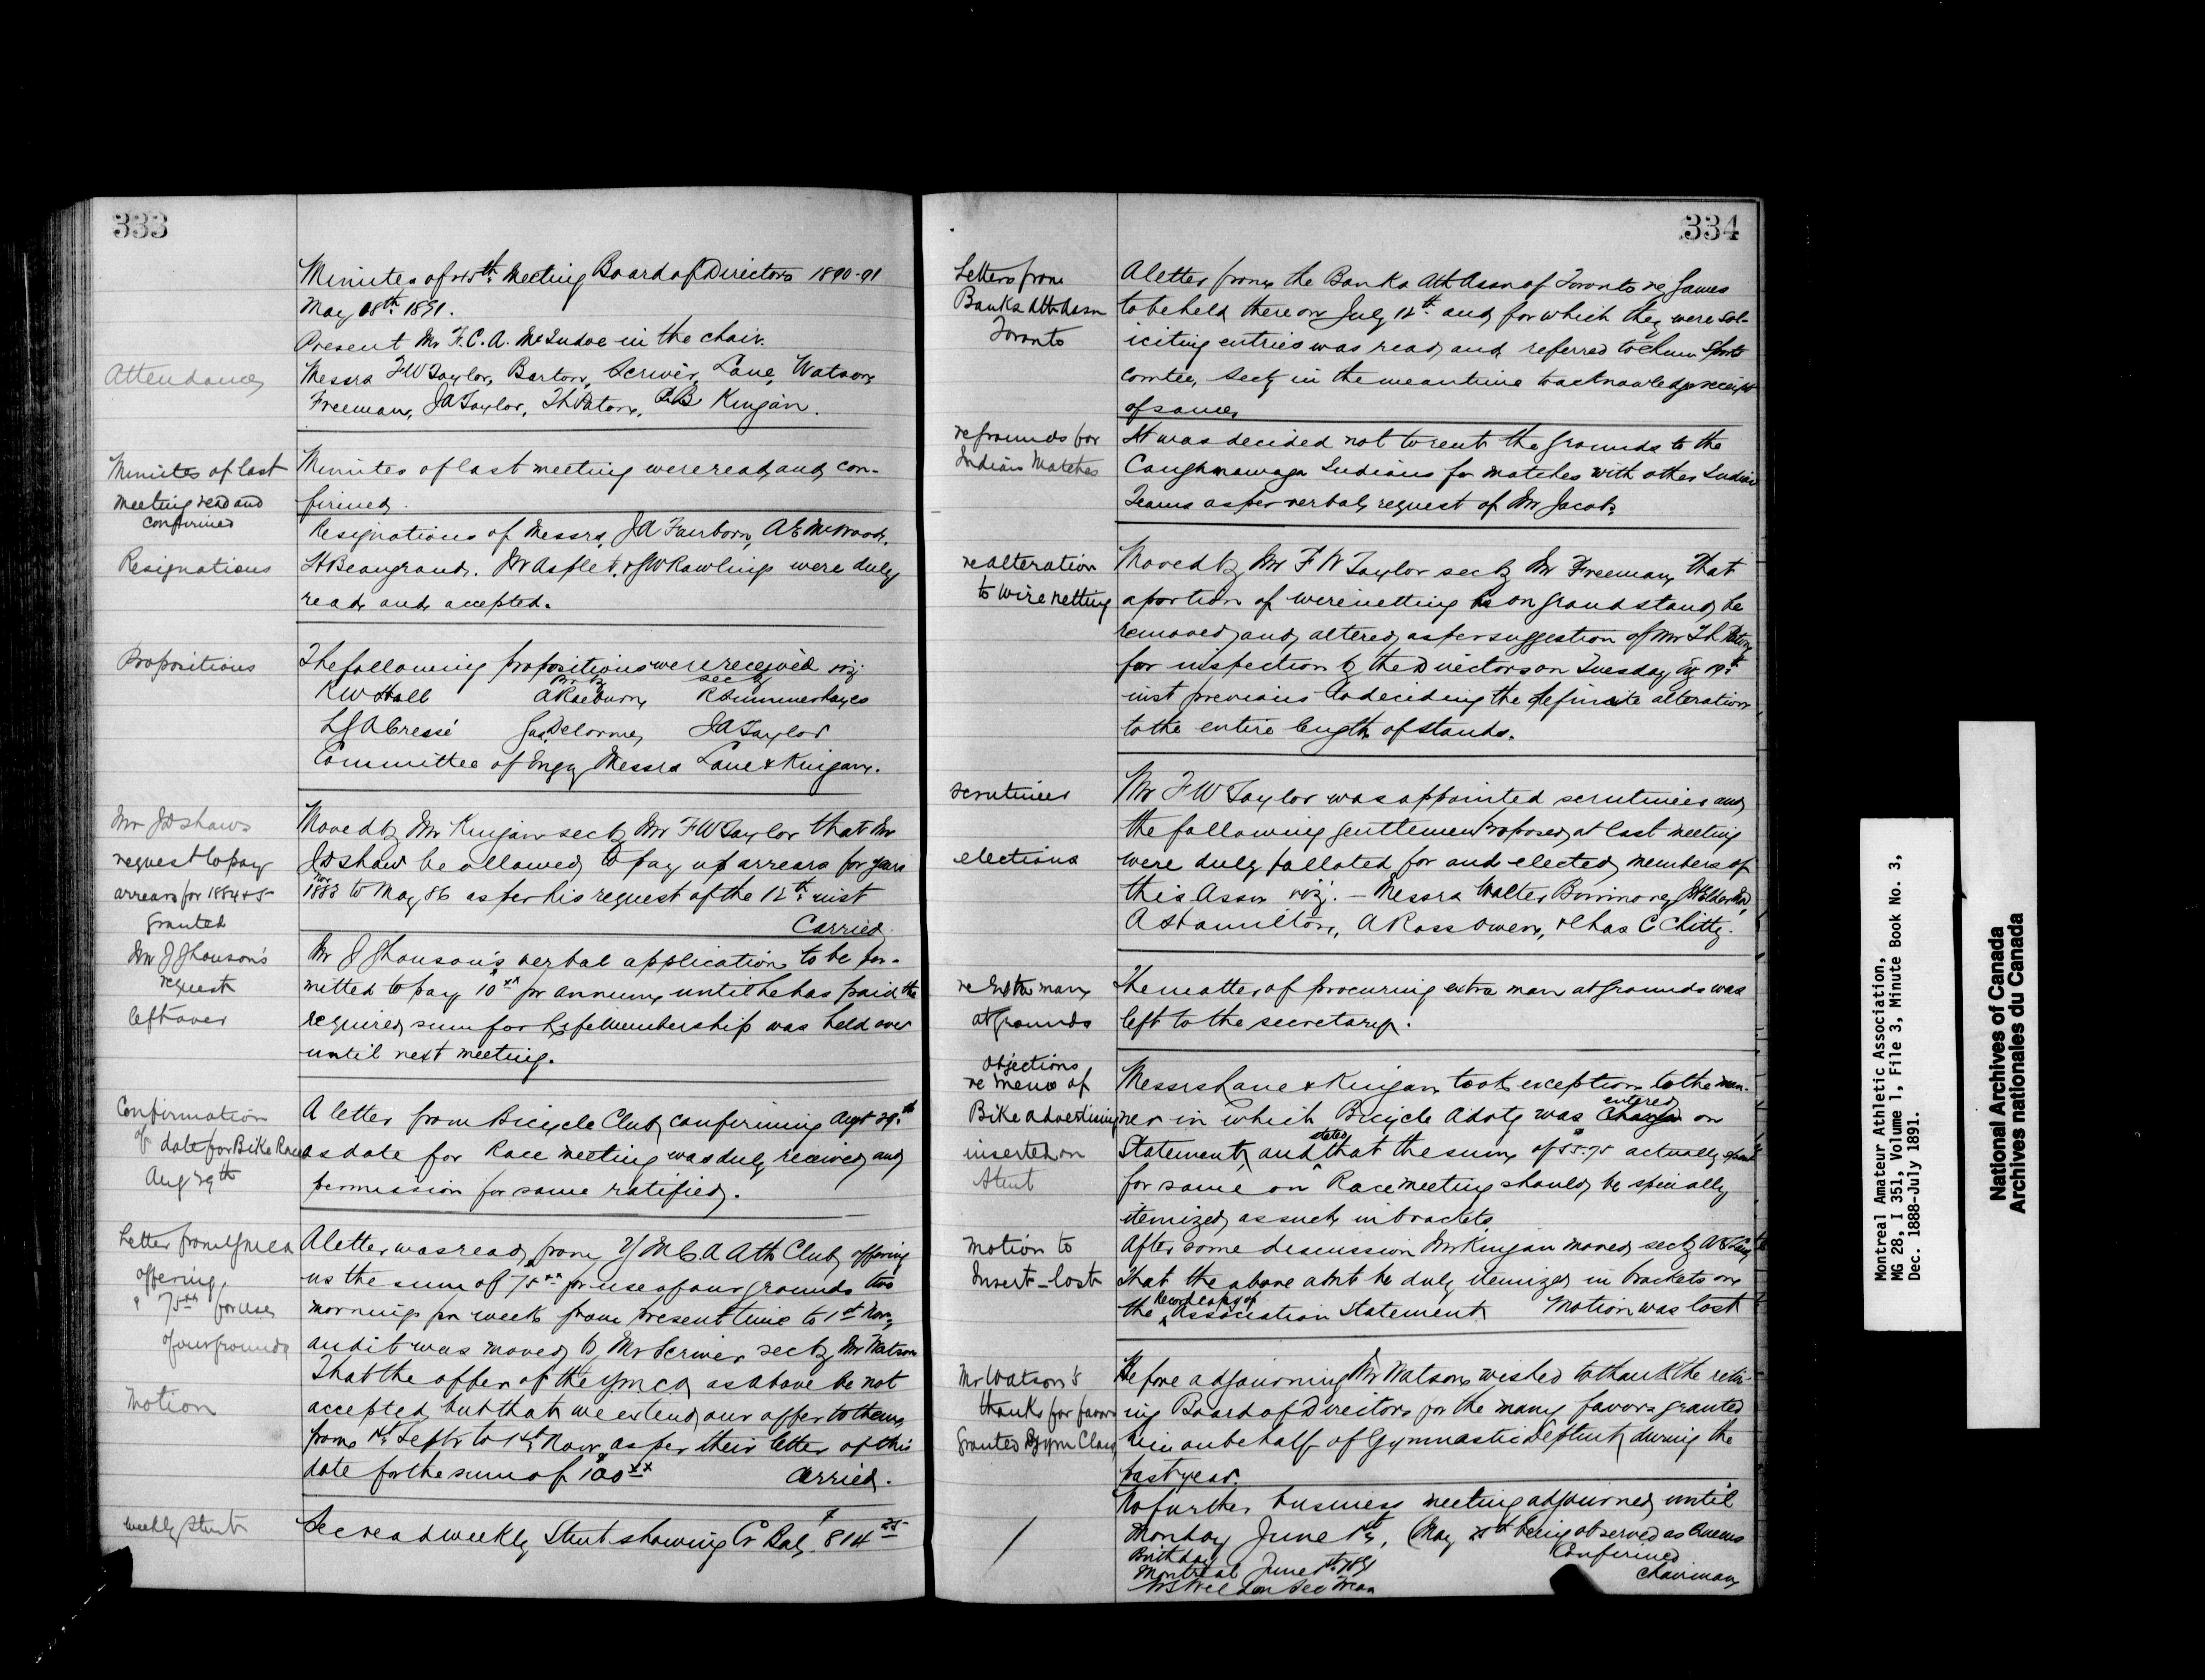 333
Minutes of 45th Meeting Board of Directors 1890-91
May 18th 1891.
Present Mr F.C.A. McIndoe in the chair.
Attendance
Messrs F W Taylor, Barton, Scriver, Lane, Watson
Freeman, J A Taylor, T L Paton, Kingan.
Minutes of last
meeting read and
confirmed
Minutes of last meeting were read and con-
firmed.
Resignations
Resignations of Messrs, J A Fairborn, A E McWood,
H Beaugrand. & J W Rawlings were duly
read and accepted.
Propositions
The following propositions were received viz
Pro by secby
R W Hall A Raeburn R Summerhayes
L J A Cressé Jas Delorme, J A Taylor
Committee of Enqy Messrs Lane & Kingan.
Mr J D Shaws
request to pay
arrears for 1884 & 5
granted
Moved by Mr Kingan secby Mr F W Taylor that Mr
J D Shaw be allowed to pay up arrears for years
Nov
1883 to May 86 as per his request of the 12th inst
Carried.
Mr J Jhonson's
request
left over
Mr J Jhonson's verbal application to be per-
mitted to pay $10xx pr annum until he has paid the
required sum for Life Membership was held over
until next meeting.
Confirmation
of date for Bike Race
Aug 29th
A letter from Bicycle Club confirming Augt 29th
as date for Race meeting was duly received and
permission for same ratified.
Letter from YMCA
offering
$75xx for use
of our grounds
A letter was read from Y M C A Ath Club offering
us the sum of $75xx for use of our grounds two
mornings per week from present time to 1st Nov,
and it was moved by Mr Scriver secby Mr Watson
Motion
That the offer of the YMCA as above be not
accepted but that we extend our offer to them
from 1st Septr to 1st Novr as per their letter of this
date for the sum of $100xx Carried.
weekly Stmt
Sec read weekly Stmt showing Cr Bal, $814 25
334
Letters from
Banks Ath Assn
Toronto
A letter from the Banks Ath Assn of Toronto re Games
to be held there on July 18th and for which they were sol-
iciting entries was read and referred to Sports
comtee, Secty in the meantime to acknowledge receipt
of same.
re grounds for
Indian Matches
It was decided not to rent the grounds to the
Caughnawaga Indians for matches with other Indian
Teams as per verbal request of Mr Jacobs
re alteration
to wire netting
Moved by Mr F W Taylor secby Mr Freeman that
a portion of wire netting on grand stand be
removed and altered as per suggestion of Mr T L Paton
for inspection by the Directors on Tuesday 19th
inst previous to deciding the definite alteration
to the entire length of stands.
scrutineer
elections
Mr F W Taylor was appointed scrutineer and
the following gentlemen proposed at last meeting
were duly balloted for and elected members of
this Assn viz. – Messrs Walter Bonimo
A Hamilton, A Ross Owen, & Chas C Chitty.
re Extra man
at grounds
The matter of procuring extra man at grounds was
left to the secretary.
Objections
re menu of
Bike advertising
inserted on
Stmt
Messrs Lane & Kingan took exception to the man-
ner in which Bicycle Advtg was entered on
Statement, and stated that the sum of $55.75 actually spent
for same on Race meeting should be specially
itemized as such in brackets.
Motion to
Insert – lost
After some discussion Mr Kingan moved secby
That the above amt be duly itemized in brackets on
the Record copy of Association Statement Motion was lost
Mr Watson's
thanks for favors
granted Gym Class
Before adjourning Mr Watson wished to thank the retir-
ing Board of Directors for the many favors granted
him on behalf of Gymnastic Deptmt during the
past year.
No further business meeting adjourned until
Monday June 1st, (May 25th being observed as Queens
Birthday
Confirmed
Montreal June 1st 1891
Chairman
W S Weldon Sec Treas
Montreal Amateur Athletic Association,
MG 28, I 351, Volume 1, File 3, Minute Book No. 3,
Dec. 1888-July 1891.
National Archives of Canada
Archives nationales du Canada